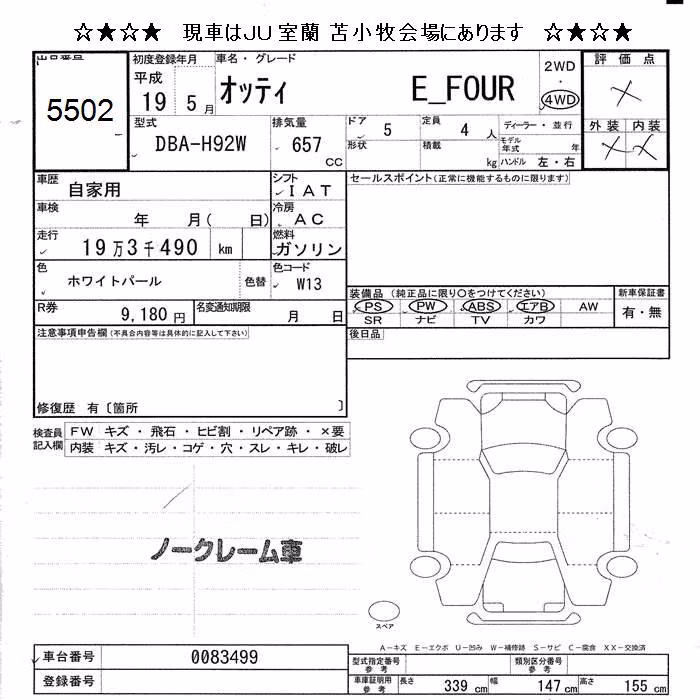 ☆★☆★ 現車はJU室蘭 苫小牧会場にあります ☆★☆★
出品番号
5502
初度登録年月
平成
19 5月
車名・グレード
オッティ E_FOUR
2WD
・
4WD
評価点
×
外装 内装
× ×
型式
DBA-H92W
排気量
657
cc
ドア
5
定員
4 人
形状
積載
kg
ディーラー・並行
モデル年式 年
ハンドル 左・右
車歴
自家用
シフト
IAT
車検
年 月( 日)
冷房
AC
走行
19万3千490 km
燃料
ガソリン
色
ホワイトパール
色替
色コード
W13
R券
9,180円
名変通知期限
月 日
セールスポイント(正常に機能するものに限ります)
装備品(純正品に限り○をつけてください)
PS PW ABS エアB AW
SR ナビ TV カワ
新車保証書
有・無
後日品
注意事項申告欄(不具合内容等は具体的に記入して下さい)
修復歴 有〔箇所 〕
検査員記入欄
FW キズ・飛石・ヒビ割・リペア跡・×要
内装 キズ・汚レ・コゲ・穴・スレ・キレ・破レ
ノークレーム車
スペア
A-キズ E-エクボ U-凹み W-補修跡 S-サビ C-腐食 XX-交換済
車台番号 0083499
登録番号
型式指定番号参考
類別区分番号参考
車庫証明用参考
長さ 339 cm 幅 147 cm 高さ 155 cm